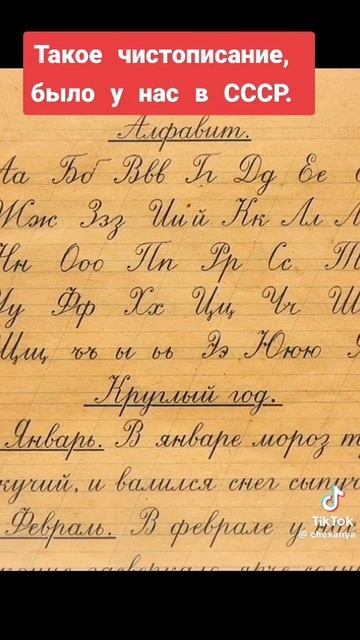 Такое чистописание,
было у нас в СССР.
Алфавит.
Аа Бб Ввв Гг Дд Ее
Жж Ззз Иий Кк Лл
Нн Ооо Пп Рр Сс Т
Уу Фф Хх Цц Чч Ш
Щщ ъъ ы ьь Ээ Ююю
Круглый год.
Январь. В январе мороз т
кучий, и валился снег сыпуч
Февраль. В феврале у
TikTok
@ chexanya